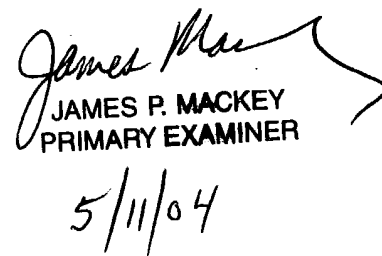 James Mac
JAMES P. MACKEY
PRIMARY EXAMINER
5/11/04